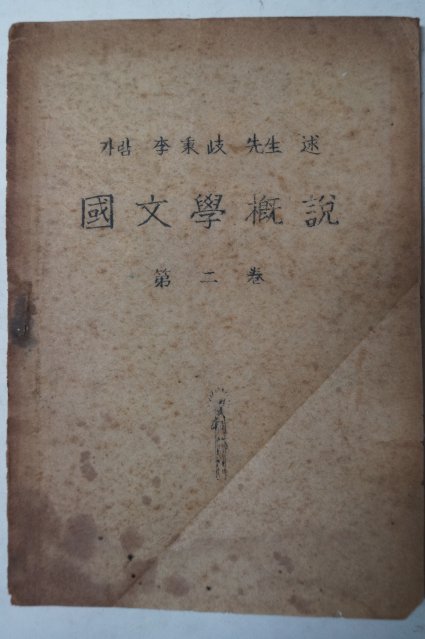 가람 李秉岐 先生 述
國文學槪說
第二卷